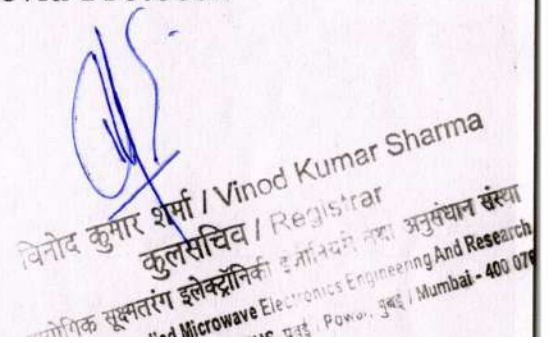 विनोद कुमार शर्मा / Vinod Kumar Sharma
कुलसचिव / Registrar
सूक्ष्मतरंग इलेक्ट्रॉनिकी इंजीनियरी तथा अनुसंधान संस्था
Microwave Electronics Engineering And Research
मुंबई / Mumbai - 400 076